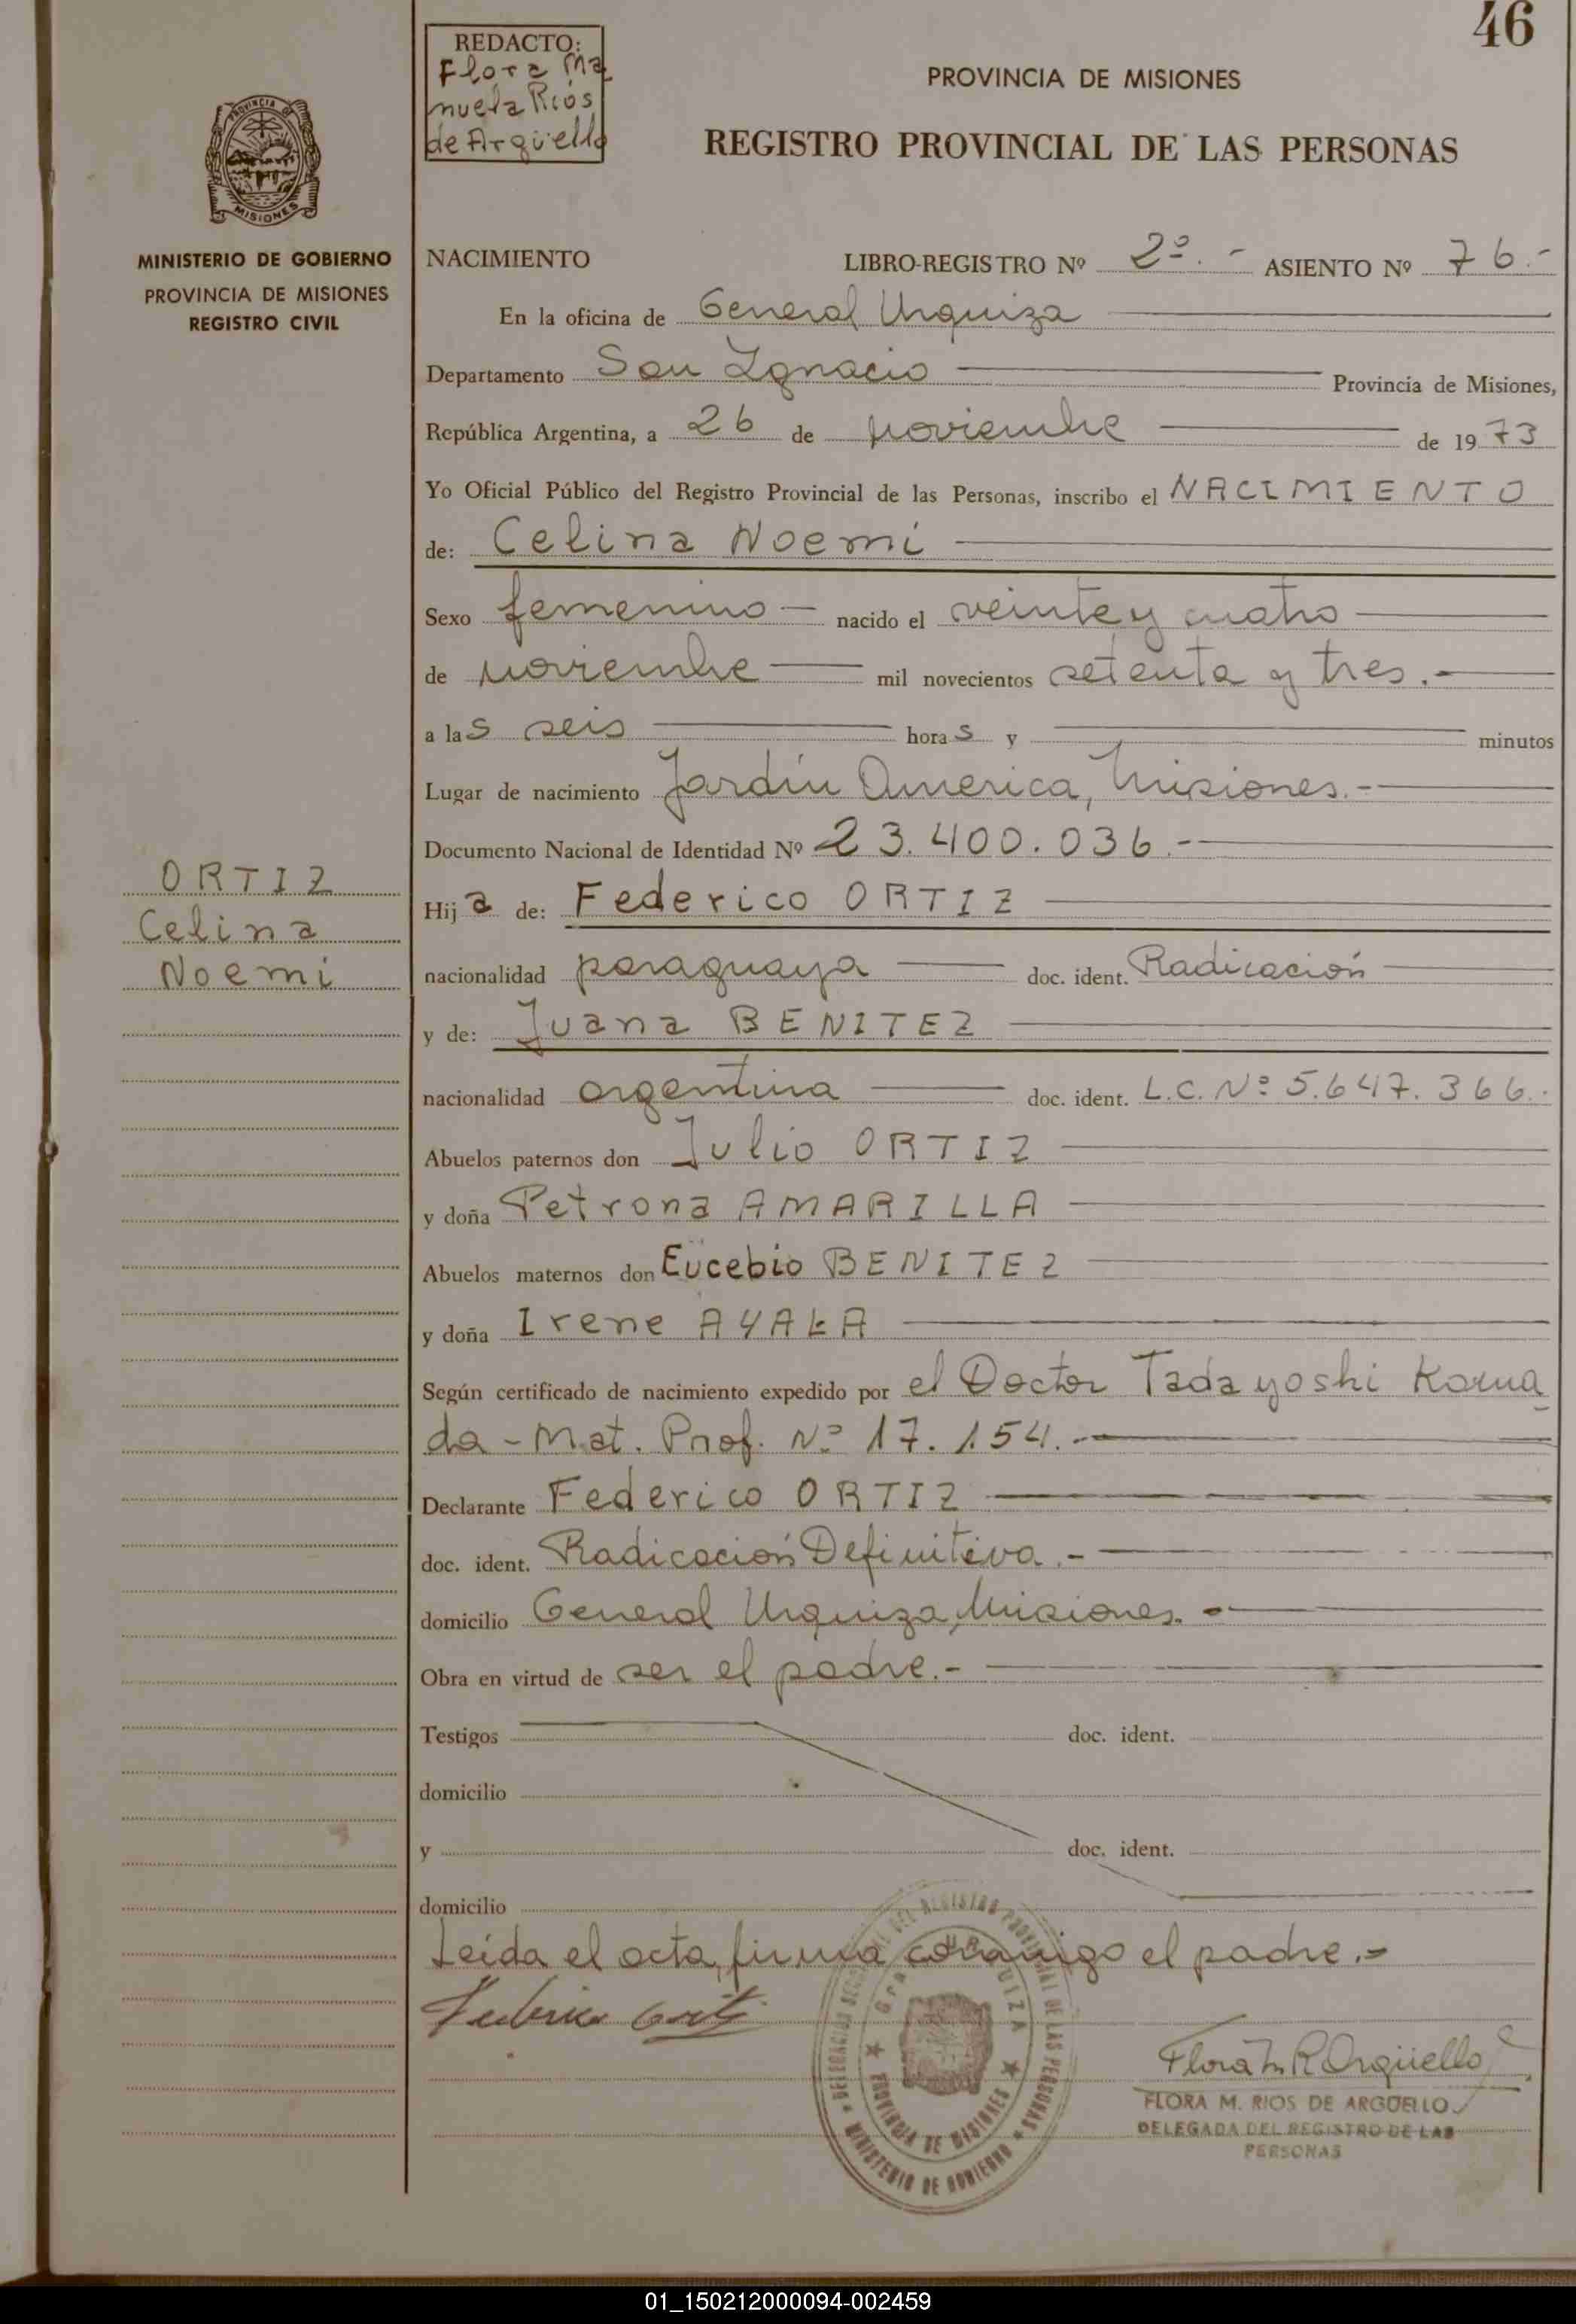 46
REDACTO:
Flora Ma
nuela Rios
de Argüello
PROVINCIA DE MISIONES
REGISTRO PROVINCIAL DE LAS PERSONAS
PROVINCIA DE
MISIONES
MINISTERIO DE GOBIERNO
PROVINCIA DE MISIONES
REGISTRO CIVIL
NACIMIENTO LIBRO-REGISTRO Nº 2º.- ASIENTO Nº 76.-
En la oficina de General Urquiza
Departamento San Ignacio Provincia de Misiones,
República Argentina, a 26 de noviembre de 1973
Yo Oficial Público del Registro Provincial de las Personas, inscribo el NACIMIENTO
de: Celina Noemi
Sexo femenino nacido el veinte y cuatro
de noviembre mil novecientos setenta y tres.-
a las seis horas y minutos
Lugar de nacimiento Jardín America, Misiones.-
Documento Nacional de Identidad Nº 23.400.036.-
ORTIZ
Celina
Noemi
Hija de: Federico ORTIZ
nacionalidad paraguaya doc. ident. Radicación
y de: Juana BENITEZ
nacionalidad argentina doc. ident. L.C. Nº 5.647.366.
Abuelos paternos don Julio ORTIZ
y doña Petrona AMARILLA
Abuelos maternos don Eucebio BENITEZ
y doña Irene AYALA
Según certificado de nacimiento expedido por el Doctor Tadayoshi
da - Mat. Prof. Nº 17.154.-
Declarante Federico ORTIZ
doc. ident. Radicación Definitiva.-
domicilio General Urquiza, Misiones.-
Obra en virtud de ser el padre.-
Testigos doc. ident.
domicilio
y doc. ident.
domicilio
Leída el acta, firma conmigo el padre.-
Federico Ortiz
DEL REGISTRO PROVINCIAL DE LAS PERSONAS
MINISTERIO DE GOBIERNO
PROVINCIA DE MISIONES
Flora M R Argüello
FLORA M. RIOS DE ARGÜELLO
DELEGADA DEL REGISTRO DE LAS
PERSONAS
01_150212000094-002459